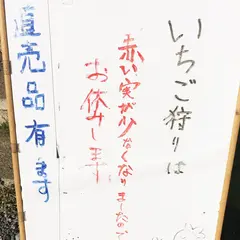 いちご狩りは
赤い実が少なくなりましたので
お休みします
直売品有ます